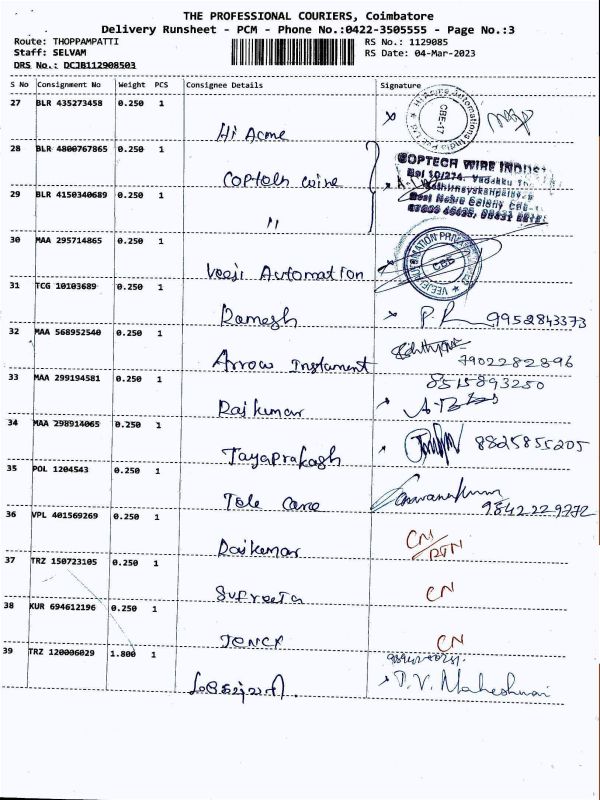 THE PROFESSIONAL COURIERS, Coimbatore
Delivery Runsheet - PCM - Phone No.:0422-3505555 - Page No.:3
Route: THOPPAMPATTI
RS No.: 1129085
Staff: SELVAM
RS Date: 04-Mar-2023
DRS No.: DCJB112908503
S No Consignment No Weight PCS Consignee Details Signature
27 BLR 435273458 0.250 1
Hi Acme
CBE-17
28 BLR 4800767865 0.250 1
Coptech wire
COPTECH WIRE
29 BLR 4150340689 0.250 1
"
30 MAA 295714865 0.250 1
Veeji Automation
31 TCG 10103689 0.250 1
Ramesh
9952843373
32 MAA 568952540 0.250 1
Arrow Instament
7902282896
33 MAA 299194581 0.250 1
8515893250
Rajkumar
34 MAA 298914065 0.250 1
Jayaprakash
8825855205
35 POL 1204543 0.250 1
Tele Care
Saravanakumar
9842229272
36 VPL 401569269 0.250 1
Rajkumar
CN/RTN
37 TRZ 150723105 0.250 1
Supreeta
CN
38 KUR 694612196 0.250 1
CN
39 TRZ 120006029 1.800 1
P.V. Maheshwari